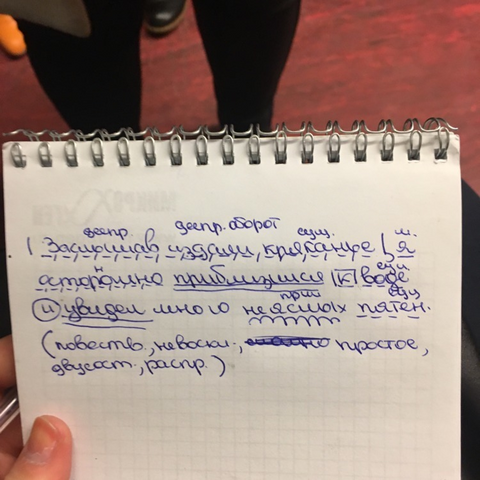 деепр. деепр. оборот сущ. м.
| Заслышав издали кряканье |, я
н сущ
осторожно приблизился к воде
прил сущ
и увидел много неясных пятен.
(повеств., невоскл., простое,
двусост., распр.)